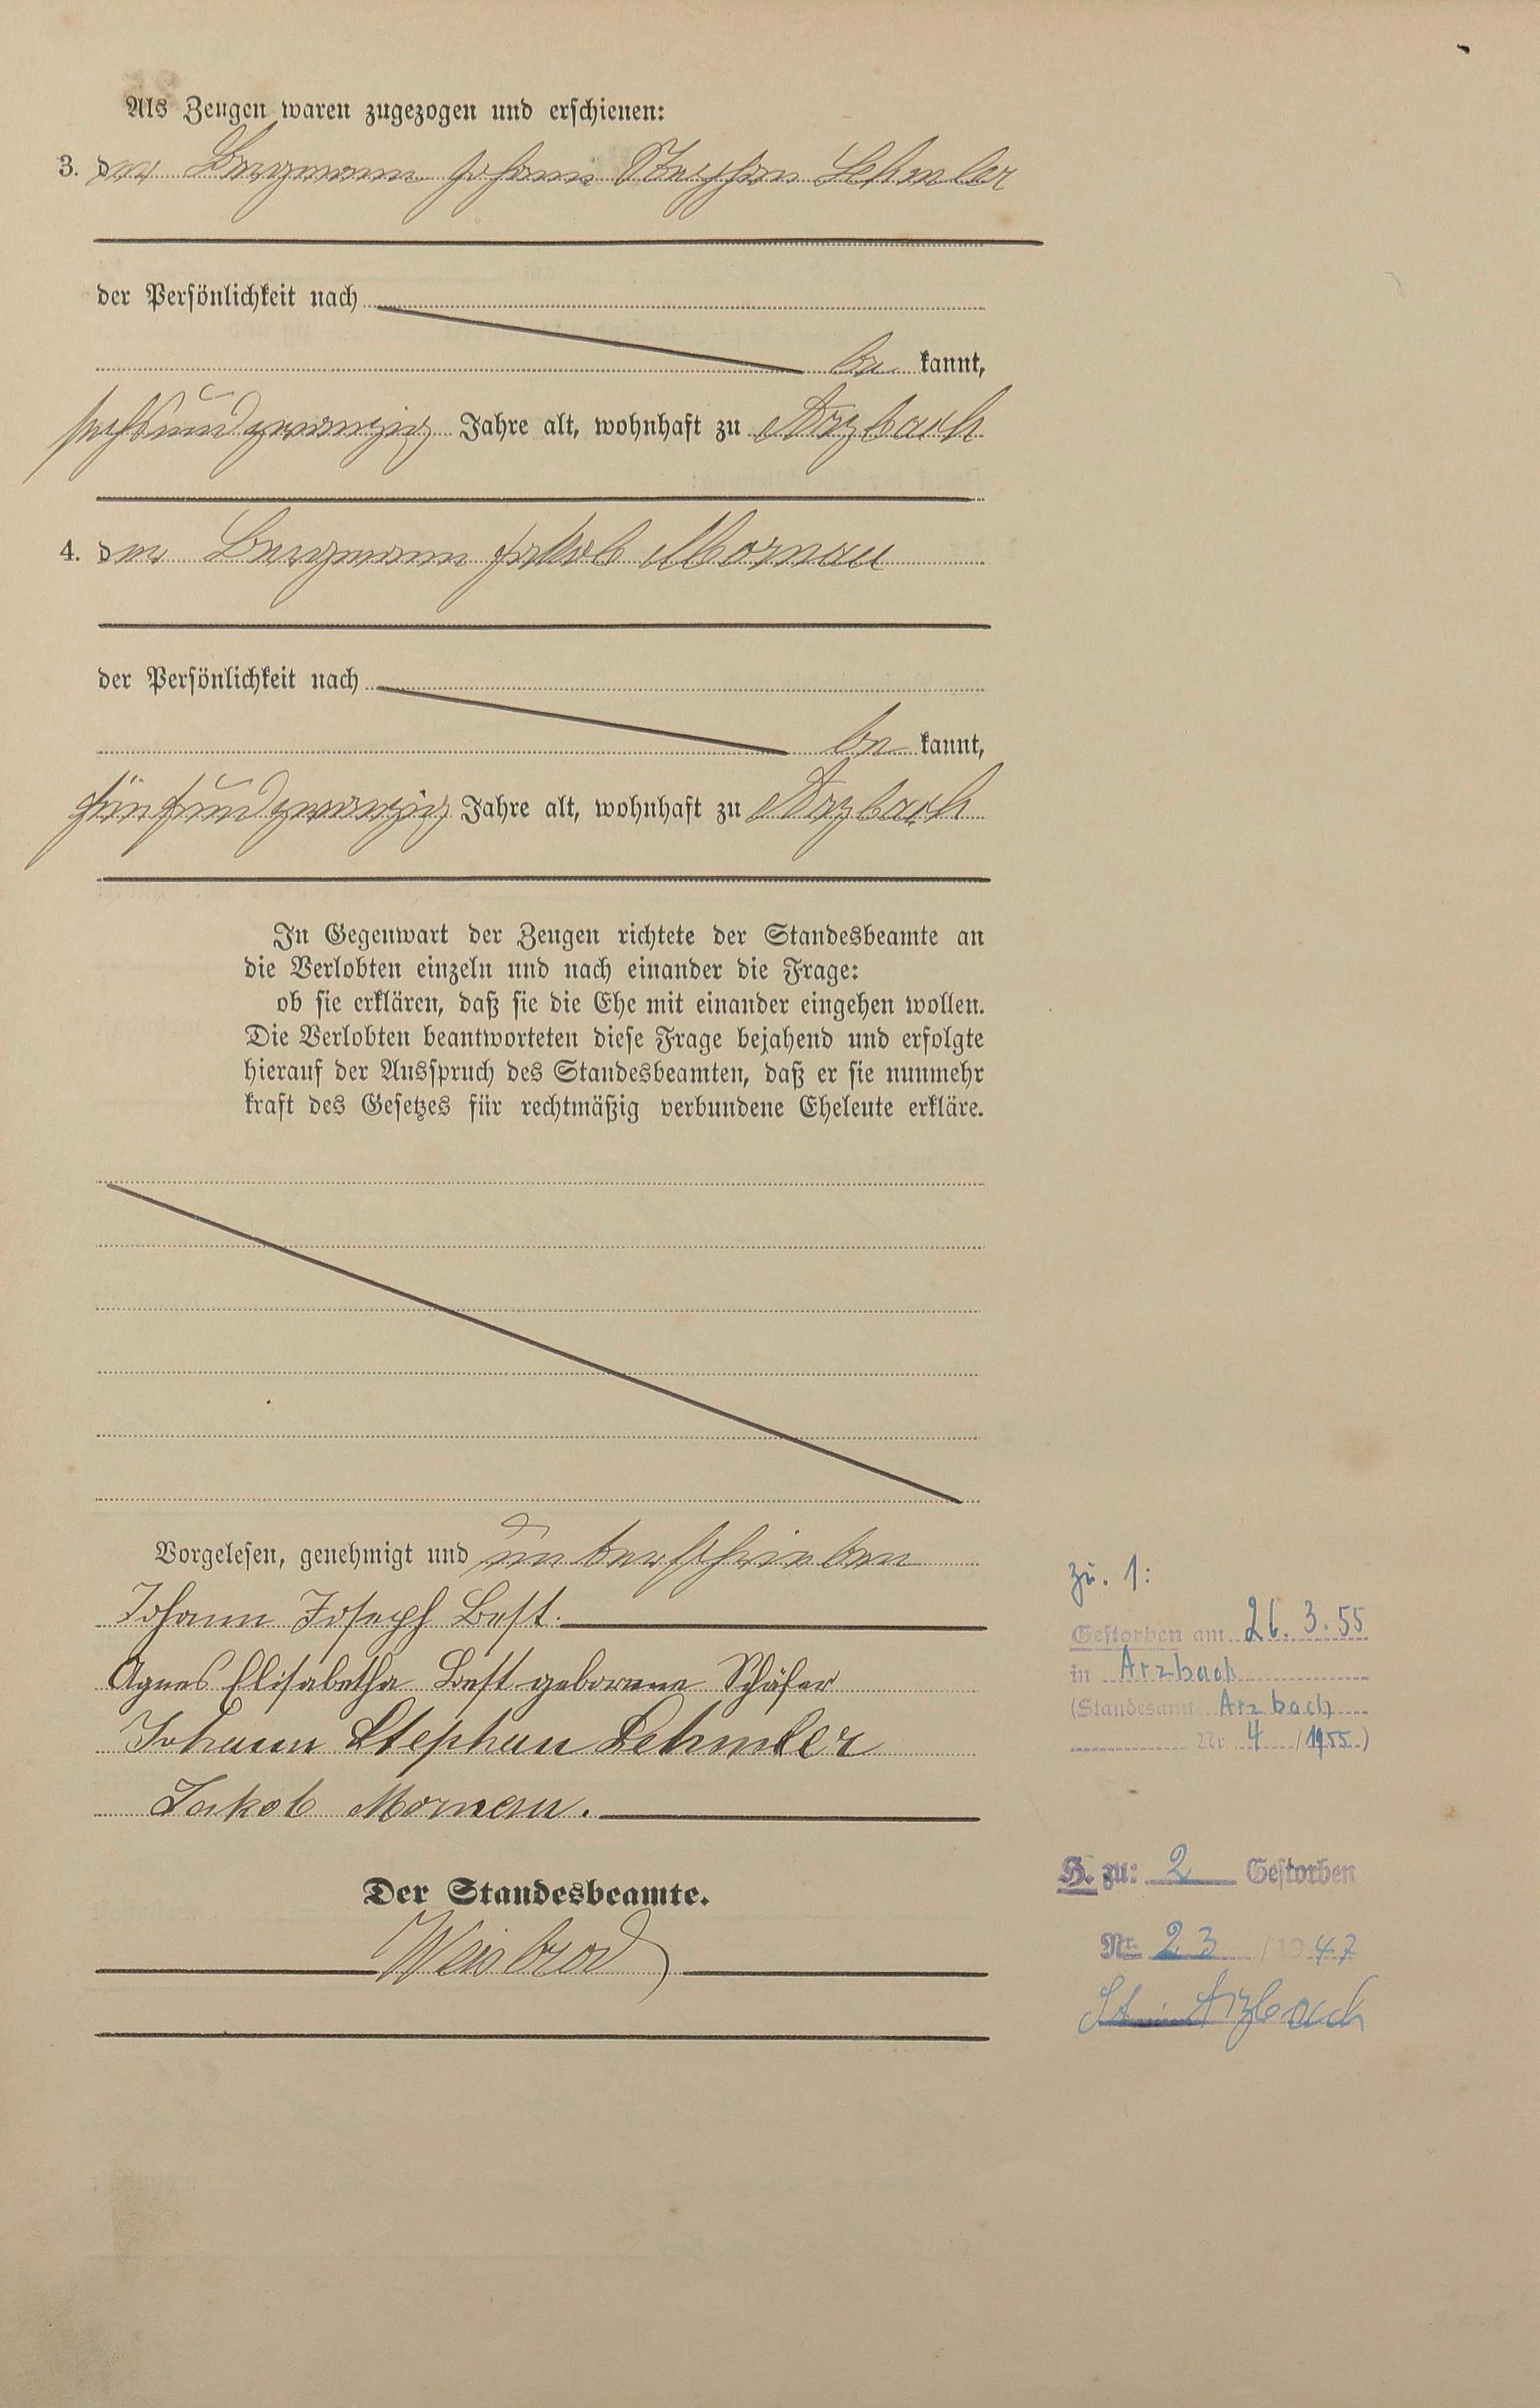 Als Zeugen waren zugezogen und erschienen:
3. der Bergmann Johann Stephan Lehmler
der Persönlichkeit nach
be kannt,
sechsundzwanzig Jahre alt, wohnhaft zu Arzbach
4. der Bergmann Jakob Mornau
der Persönlichkeit nach
be kannt,
fünfundzwanzig Jahre alt, wohnhaft zu Arzbach
In Gegenwart der Zeugen richtete der Standesbeamte an
die Verlobten einzeln und nach einander die Frage:
ob sie erklären, daß sie die Ehe mit einander eingehen wollen.
Die Verlobten beantworteten diese Frage bejahend und erfolgte
hierauf der Ausspruch des Standesbeamten, daß er sie nunmehr
kraft des Gesetzes für rechtmäßig verbundene Eheleute erkläre.
Vorgelesen, genehmigt und unterschrieben
Johann Joseph Best.
Agnes Elisabetha Best geborene Schäfer
Johann Stephan Lehmler
Jakob Mornau.
Der Standesbeamte.
Weisbrod
zu. 1:
Gestorben am 26.3.55
in Arzbach
(Standesamt Arzbach
Nr. 4 /1955)
H. zu: 2 Gestorben
Nr. 23 /1947
St. Arzbach